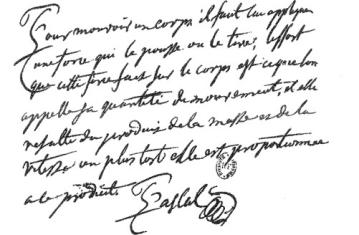 Pour mouvoir un corps il faut lui appliquer
une force qui le pousse ou le tire; l'effort
que cette force fait sur le corps est ce que lon
appelle sa quantité de mouvement, et elle
resulte du produit de la masse et de la
vitesse ou plus tost elle est proportionnee
a ce produit